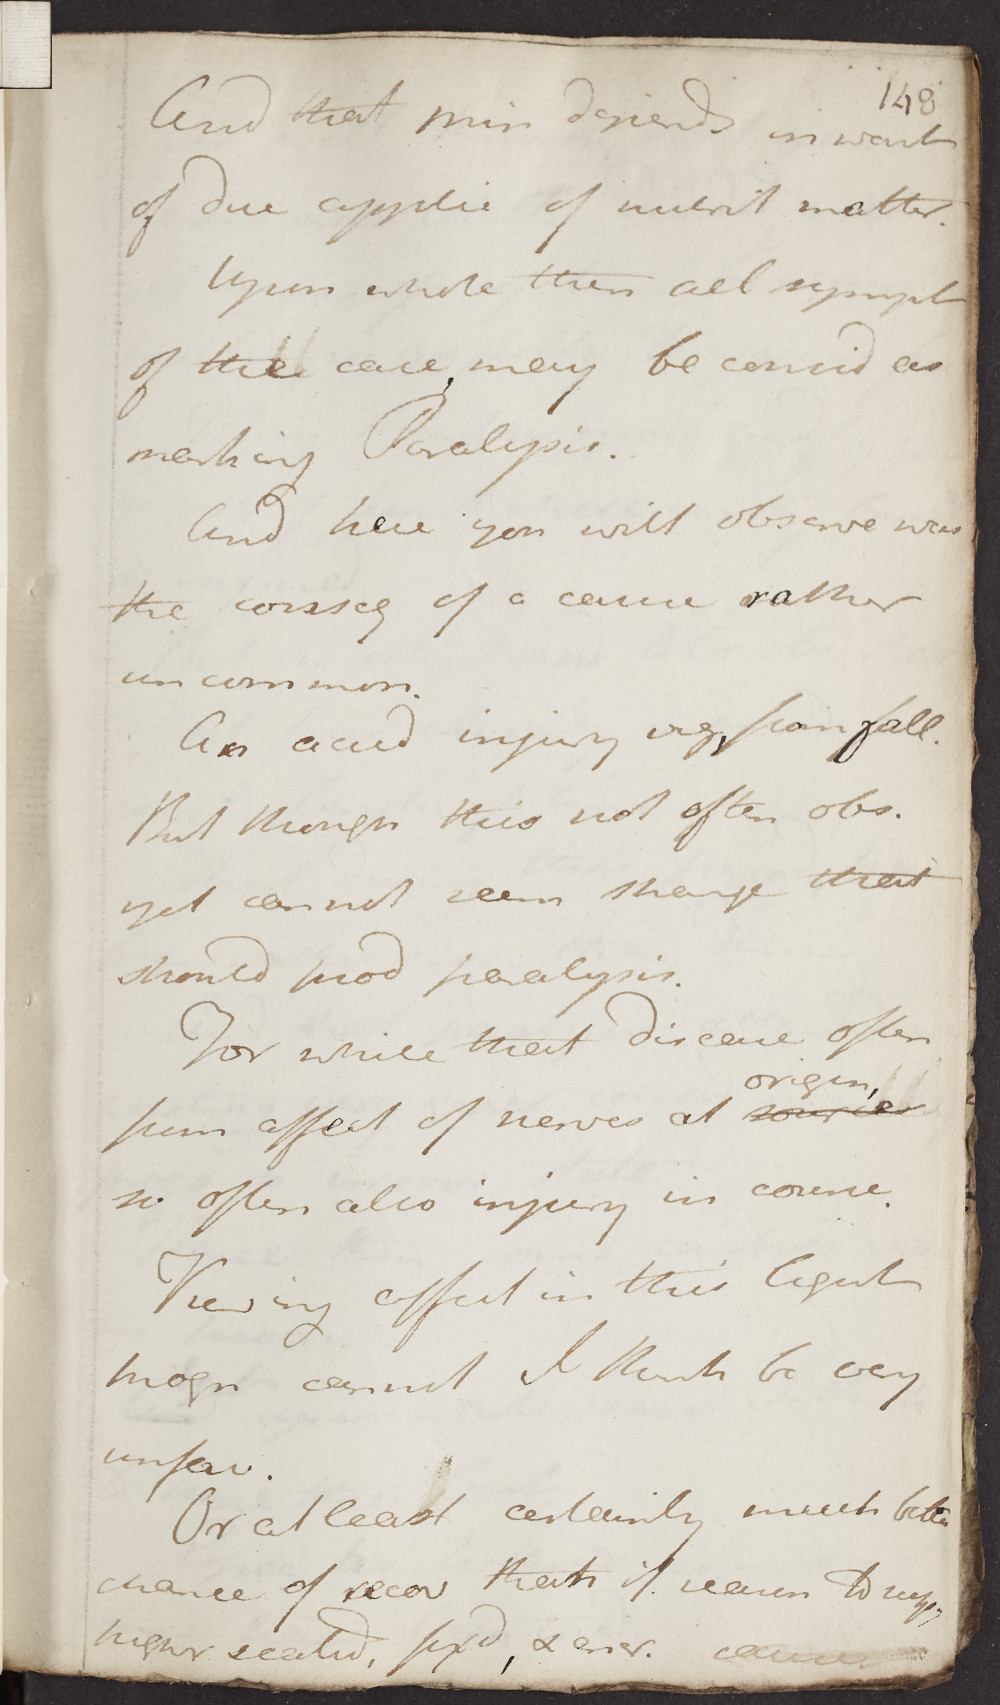 148
And that dimin depends on want
of due applic of nutrit matter.
Upon whole then all sympt
of this case, may be consid as
marking Paralysis.
And here you will observe was
the conseq of a cause rather
uncommon.
An accid injury viz, from fall.
But though this not often obs.
yet cannot seem strange that
should prod paralysis.
For while that disease often
origin,
from affect of nerves at source
so often also injury in course.
Viewing affect in this light
progn cannot I think be very
unfav.
Or at least certainly much better
chance of recov than if reason to
higher seated, fixd, &